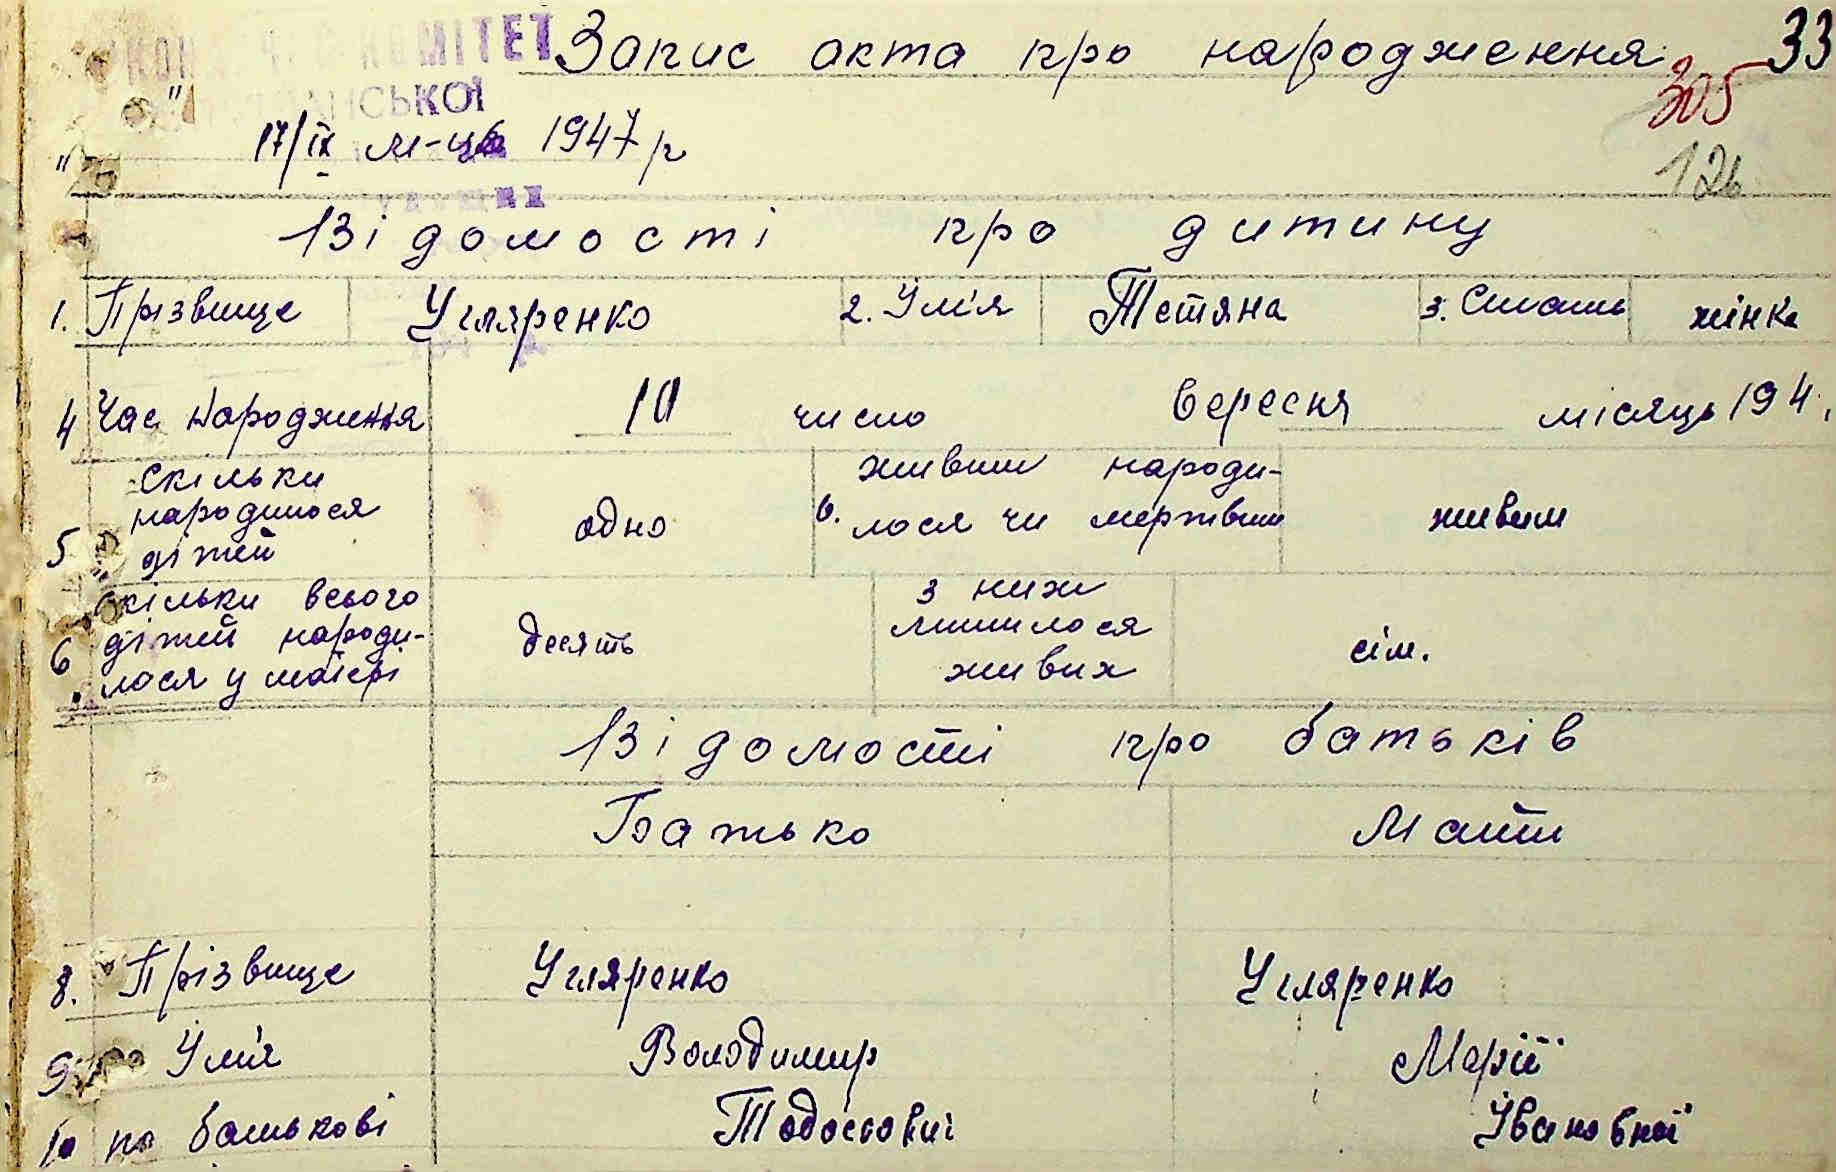 КОМІТЕТ Запис акта про народження 33
СЬКОЇ 305
17/ІХ м-ць 1947 р
126
Відомості про дитину
1. Прізвище Угляренко 2. Ім'я Тетяна 3. Стать жінка
4 Час народження 10 число Вересня місяць 194
5 Скільки народилося дітей одно 6. живим народи-лося чи мертвим живим
6. Скільки всього дітей народи-лося у матері десять з них лишилося живих сім.
Відомості про батьків
Батько Мати
8. Прізвище Угляренко Угляренко
9 Ім'я Володимир Марії
10 по батькові Тодосович Івановної